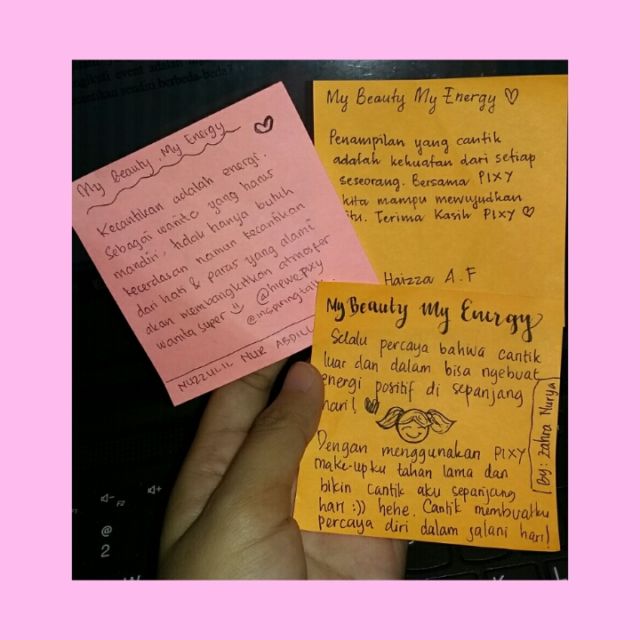 My Beauty, My Energy
Kecantikan adalah energi.
Sebagai wanita yang harus
mandiri, tidak hanya butuh
kecerdasan namun kecantikan
dari hati & paras yang alami
akan membangkitkan atmosfer
wanita super @inpwePixy
@inspiringtalk..
NUZZULIL NUR ABDILL
My Beauty My Energy ♡
Penampilan yang cantik
adalah kekuatan dari setiap
seseorang. Bersama PIXY
kita mampu mewujudkan
itu. Terima Kasih PIXY ♡
Haizza A.F
My Beauty My Energy
Selalu percaya bahwa cantik
luar dan dalam bisa ngebuat
energi positif di sepanjang
hari!
Dengan menggunakan PIXY
make-upku tahan lama dan
bikin cantik aku sepanjang
hari :)) hehe. Cantik membuatku
percaya diri dalam jalani hari!
By: Zahra Nurya
F2
@
2
W